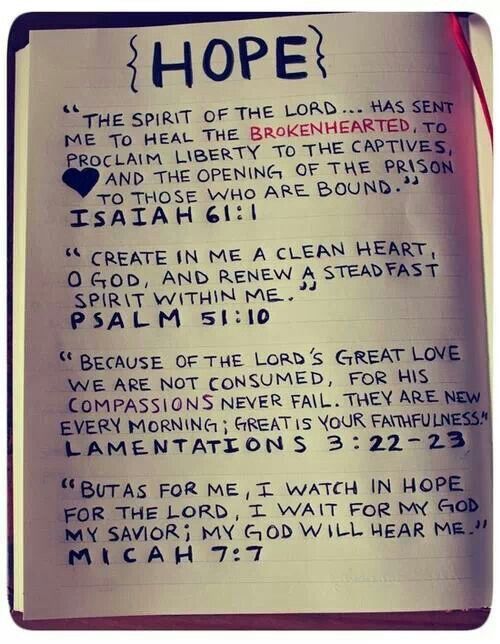 {HOPE}
“THE SPIRIT OF THE LORD... HAS SENT
ME TO HEAL THE BROKENHEARTED, TO
PROCLAIM LIBERTY TO THE CAPTIVES,
AND THE OPENING OF THE PRISON
TO THOSE WHO ARE BOUND.”
ISAIAH 61:1
“CREATE IN ME A CLEAN HEART,
O GOD, AND RENEW A STEADFAST
SPIRIT WITHIN ME.”
PSALM 51:10
“BECAUSE OF THE LORD'S GREAT LOVE
WE ARE NOT CONSUMED, FOR HIS
COMPASSIONS NEVER FAIL. THEY ARE NEW
EVERY MORNING; GREAT IS YOUR FAITHFULNESS."
LAMENTATIONS 3:22-23
“BUT AS FOR ME, I WATCH IN HOPE
FOR THE LORD, I WAIT FOR MY GOD
MY SAVIOR; MY GOD WILL HEAR ME.”
MICAH 7:7